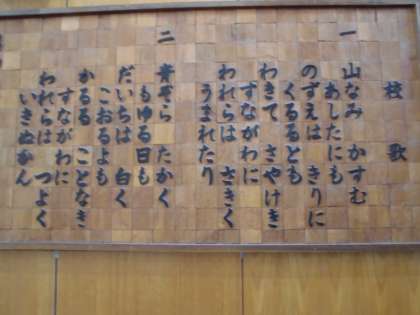 校歌
一
山なみ かすむ
あしたにも
のずえは きりに
くるるとも
わきて さやけき
すながわに
われらは さきく
うまれたり
二
青ぞら たかく
もゆる日も
だいちは 白く
こおるよも
かるる ことなき
すながわに
われらは つよく
いきぬかん